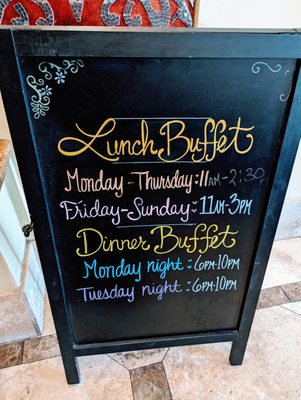 Lunch Buffet
Monday-Thursday: 11AM-2:30
Friday-Sunday: 11AM-3PM
Dinner Buffet
Monday night: 6PM-10PM
Tuesday night: 6PM-10PM